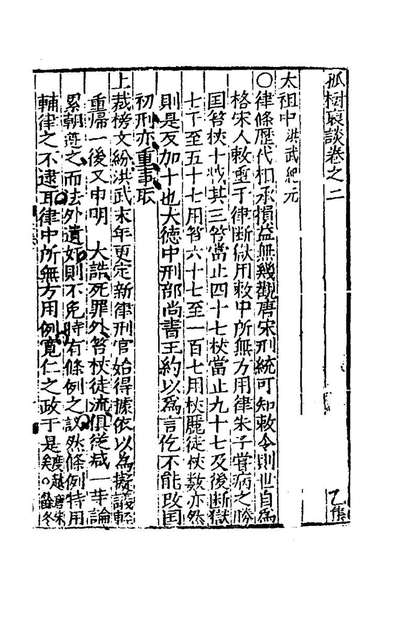 孤樹裒談卷之二　乙集
太祖中洪武紀元
○律條歷代相承損益無幾觀唐宋刑統可知敕令則世自為
格宋人敕重于律斷獄用敕中所無方用律朱子嘗病之勝
国笞杖十減其三笞當止四十七杖當止九十七及後斷獄
七下至五十七用笞六十七至一百七用杖麗徒杖數亦然
則是反加十也大德中刑部尚書王約以為言仡不能改国
初刑亦重事取
上裁榜文紛洪武末年更定新律刑官始得據依以為擬議輕
重歸一後又申明　大誥死罪外笞杖徒流俱從减一䒭論
累朝遵之而法外遺奸則不免時有條例之設然條例特用
輔律之不逮耳律中所無方用例寬仁之政于是度越唐宋矣○餘冬